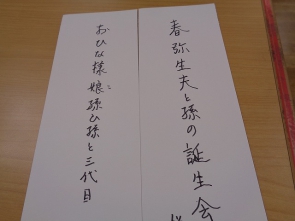 春弥生夫と孫の誕生会
おひな様娘孫ひ孫と三代目